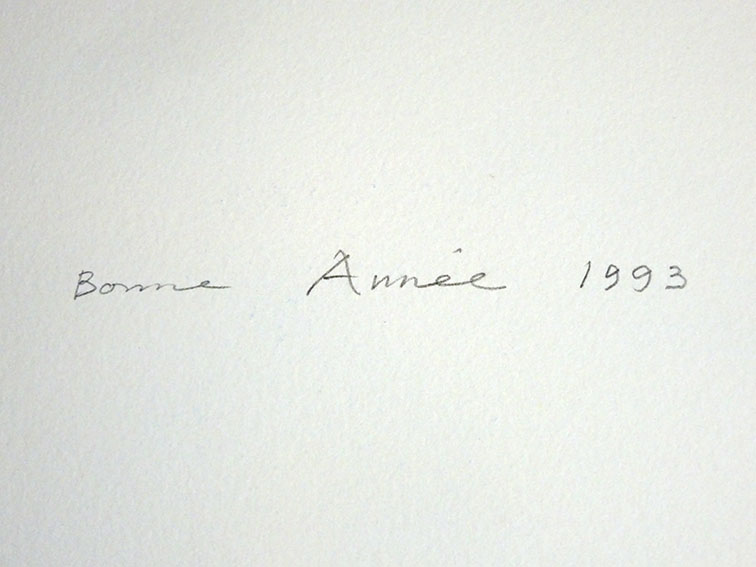 Bonne Année 1993